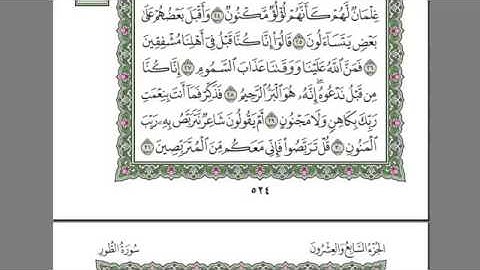 غِلْمَانٌ لَّهُمْ كَأَنَّهُمْ لُؤْلُؤٌ مَّكْنُونٌ ۝٢٤ وَأَقْبَلَ بَعْضُهُمْ عَلَىٰ
بَعْضٍ يَتَسَآءَلُونَ ۝٢٥ قَالُوٓا۟ إِنَّا كُنَّا قَبْلُ فِىٓ أَهْلِنَا مُشْفِقِينَ
۝٢٦ فَمَنَّ ٱللَّهُ عَلَيْنَا وَوَقَىٰنَا عَذَابَ ٱلسَّمُومِ ۝٢٧ إِنَّا كُنَّا
مِن قَبْلُ نَدْعُوهُ ۖ إِنَّهُۥ هُوَ ٱلْبَرُّ ٱلرَّحِيمُ ۝٢٨ فَذَكِّرْ فَمَآ أَنتَ بِنِعْمَتِ
رَبِّكَ بِكَاهِنٍ وَلَا مَجْنُونٍ ۝٢٩ أَمْ يَقُولُونَ شَاعِرٌ نَّتَرَبَّصُ بِهِۦ رَيْبَ
ٱلْمَنُونِ ۝٣٠ قُلْ تَرَبَّصُوا۟ فَإِنِّى مَعَكُم مِّنَ ٱلْمُتَرَبِّصِينَ ۝٣١
٥٢٤
الجُزْءُ السَّابِعُ وَالعِشْرُونَ
سُورَةُ الطُّورِ